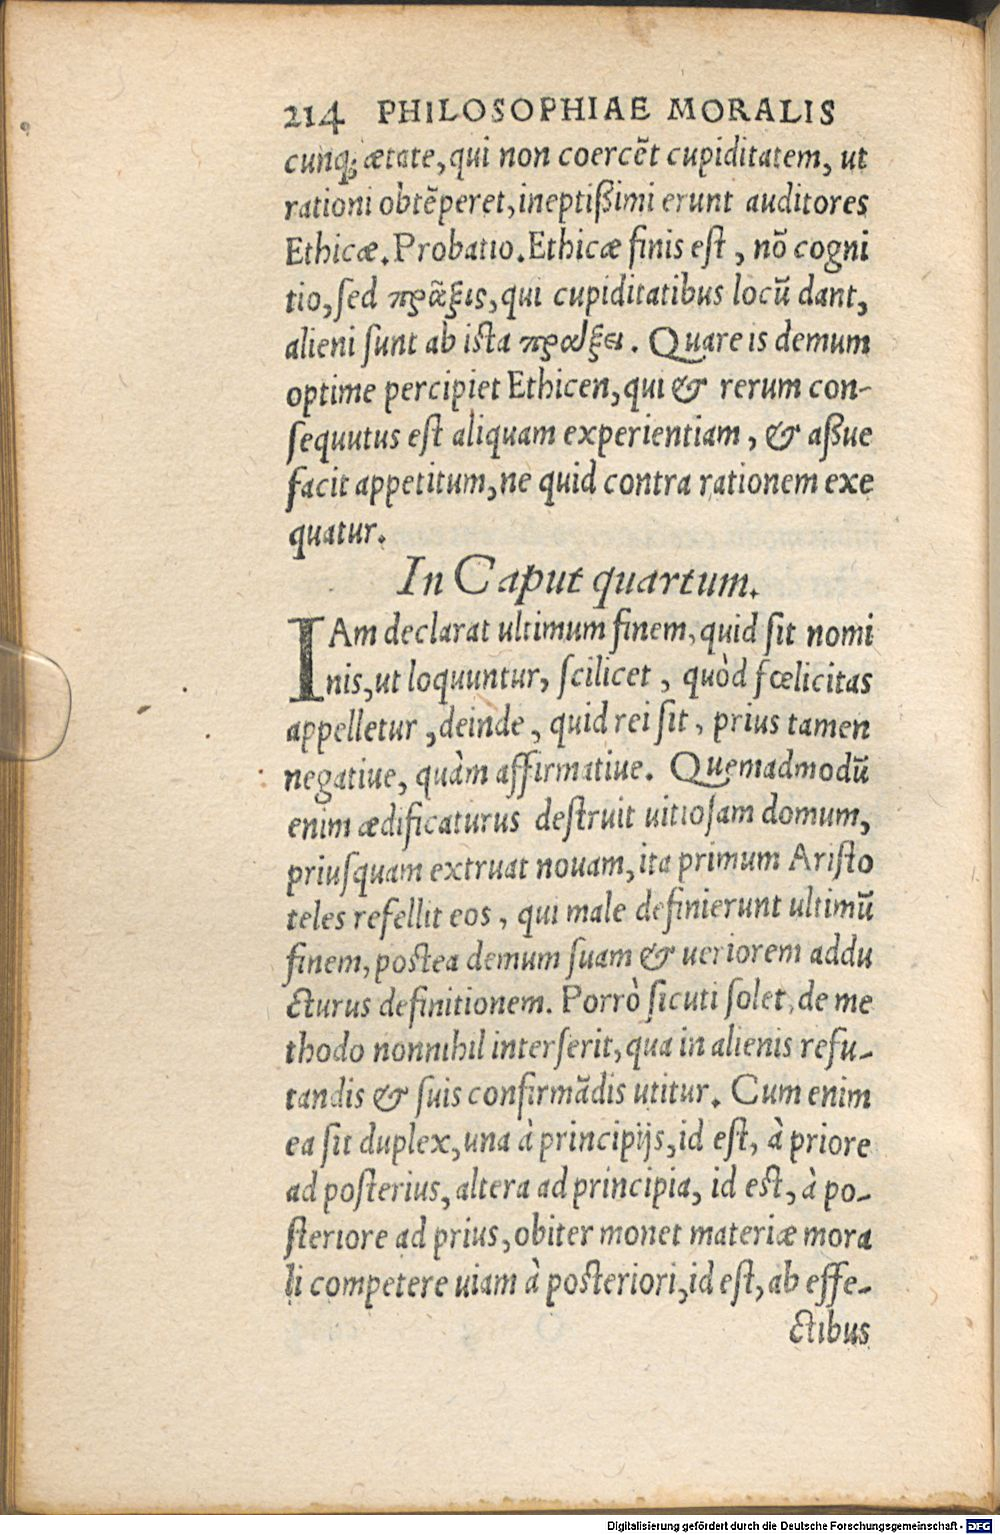 214 PHILOSOPHIAE MORALIS
cunq; ætate, qui non coercẽt cupiditatem, ut
rationi obtẽperet, ineptißimi erunt auditores
Ethicæ. Probatio. Ethicæ finis eſt, nõ cogni
tio, ſed πρᾶξις, qui cupiditatibus locũ dant,
alieni ſunt ab iſta πράξει. Quare is demum
optime percipiet Ethicen, qui & rerum con-
ſequutus eſt aliquam experientiam, & aßue
facit appetitum, ne quid contra rationem exe
quatur.
In Caput quartum.
IAm declarat ultimum finem, quid ſit nomi
nis, ut loquuntur, ſcilicet, quòd fœlicitas
appelletur, deinde, quid rei ſit, prius tamen
negatiue, quàm affirmatiue. Quemadmodũ
enim ædificaturus deſtruit uitioſam domum,
priuſquam extruat nouam, ita primum Ariſto
teles refellit eos, qui male definierunt ultimũ
finem, postea demum ſuam & ueriorem addu
cturus definitionem. Porrò ſicuti ſolet, de me
thodo nonnihil interſerit, qua in alienis refu-
tandis & ſuis confirmãdis utitur. Cum enim
ea ſit duplex, una à principijs, id eſt, à priore
ad poſterius, altera ad principia, id est, à po-
ſteriore ad prius, obiter monet materiæ mora
li competere uiam à posteriori, id eſt, ab effe-
ctibus
Digitalisierung gefördert durch die Deutsche Forschungsgemeinschaft - DFG